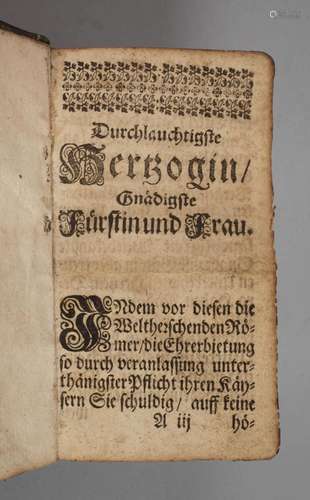 Durchlauchtigste
Hertzogin/
Gnädigste
Fürstin und Frau.
INdem vor diesen die
Weltherschenden Rö-
mer/die Ehrerbietung
so durch veranlassung unter-
thänigster Pflicht ihren Käy-
sern Sie schuldig/ auff keine
A iij hö-